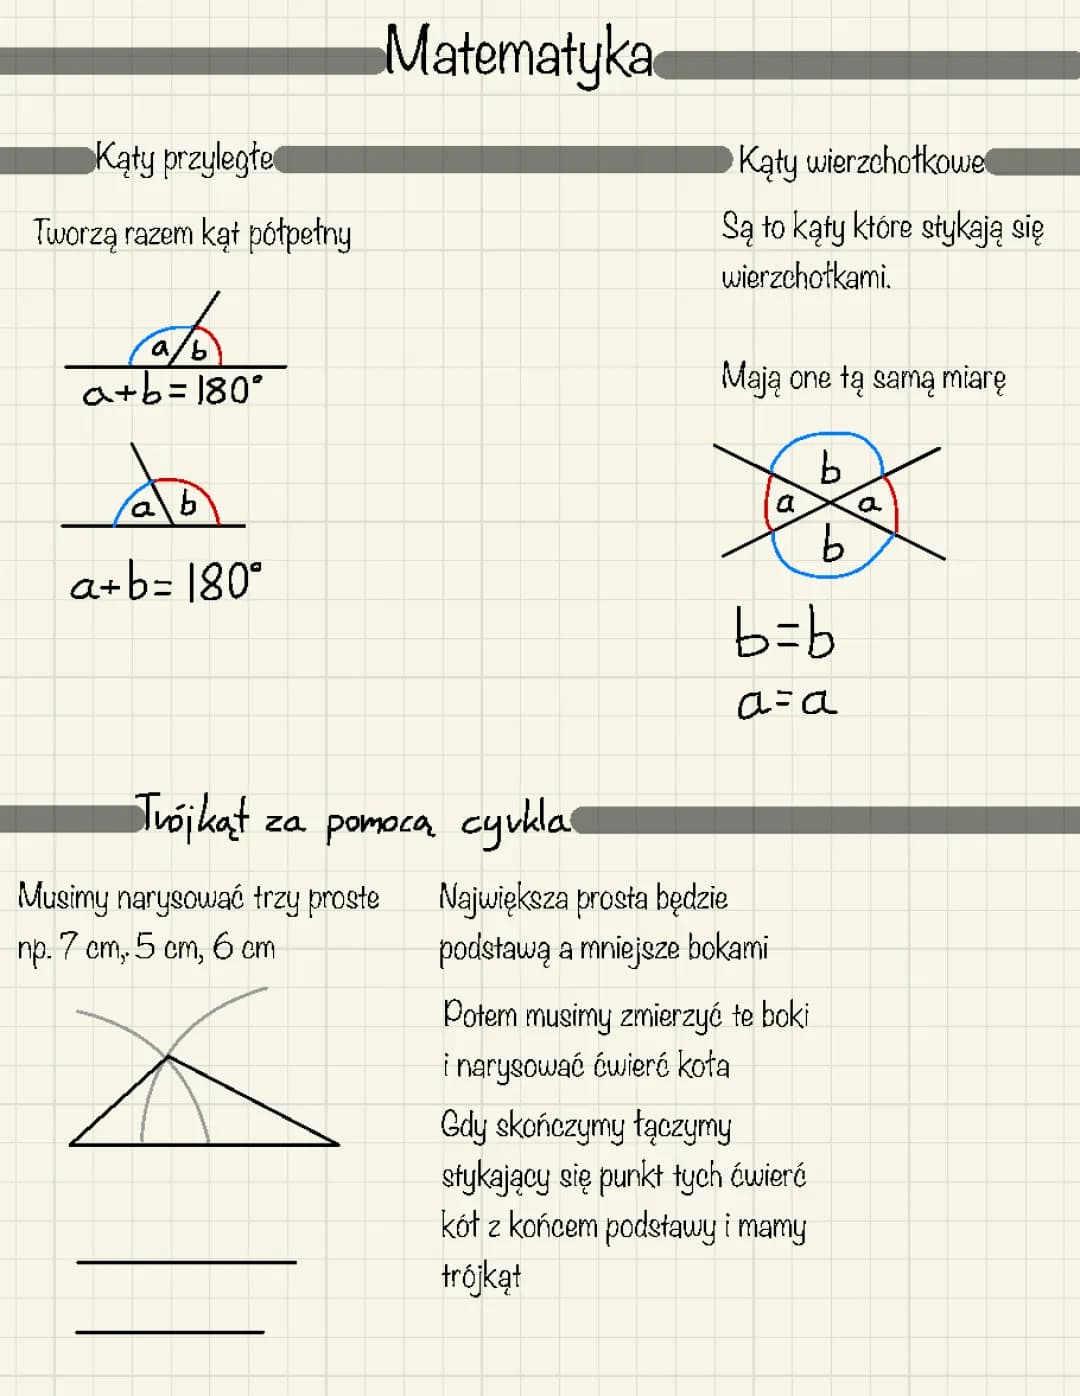 Matematyka
Kąty przyległe
Tworzą razem kąt półpełny
a b
a+b=180°
a b
a+b=180°
Kąty wierzchołkowe
Są to kąty które stykają się
wierzchołkami.
Mają one tą samą miarę
b
a a
b
b=b
a=a
Trójkąt za pomocą cyrkla
Musimy narysować trzy proste
np. 7 cm, 5 cm, 6 cm
Największa prosta będzie
podstawą a mniejsze bokami
Potem musimy zmierzyć te boki
i narysować ćwierć koła
Gdy skończymy łączymy
stykający się punkt tych ćwierć
kół z końcem podstawy i mamy
trójkąt